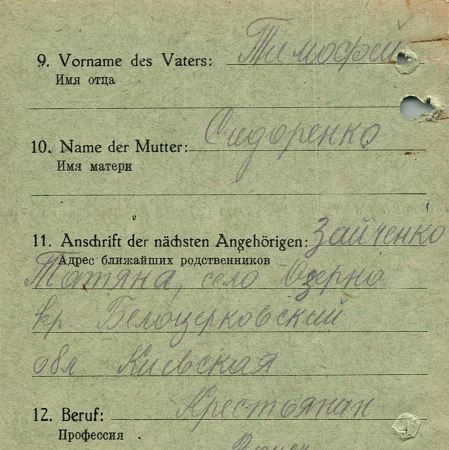 9. Vorname des Vaters: Тимофей
Имя отца
10. Name der Mutter: Сидоренко
Имя матери
11. Anschrift der nächsten Angehörigen: Зайченко
Адрес ближайших родственников
Татяна, село Озерна
кр. Белоцерковский
обл Киевская
12. Beruf: Крестьянин
Профессия